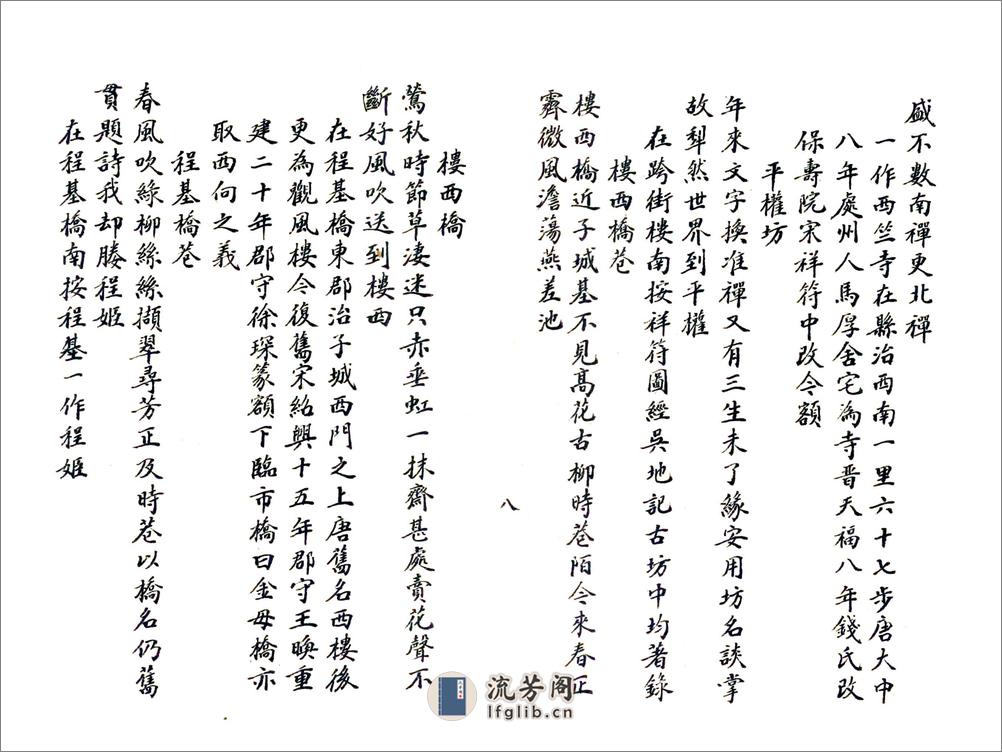 盛不數南禪更北禪
一作西竺寺在縣治西南一里六十七步唐大中
八年處州人馬厚舍宅為寺晋天福八年錢氏改
保壽院宋祥符中改今額
平權坊
年來文字換准禪又有三生未了緣安用坊名談掌
故犁然世界到平權
在跨街樓南按祥符圖經吳地記古坊中均著錄
樓西橋巷
樓西橋近子城基不見高花古柳時巷陌今來春正
霽微風澹蕩燕差池
八
樓西橋
鶯秋時節草淒迷只赤垂虹一抹齋甚處賣花聲不
斷好風吹送到樓西
在程基橋東郡治子城西門之上唐舊名西樓後
更為觀風樓今復舊宋紹興十五年郡守王㬇重
建二十年郡守徐琛篆額下臨市橋曰金母橋亦
取西向之義
程基橋巷
春風吹綠柳絲絲擷翠尋芳正及時巷以橋名仍舊
貫題詩我却賸程姬
在程基橋南按程基一作程姬
流芳阁
lfglib.cn